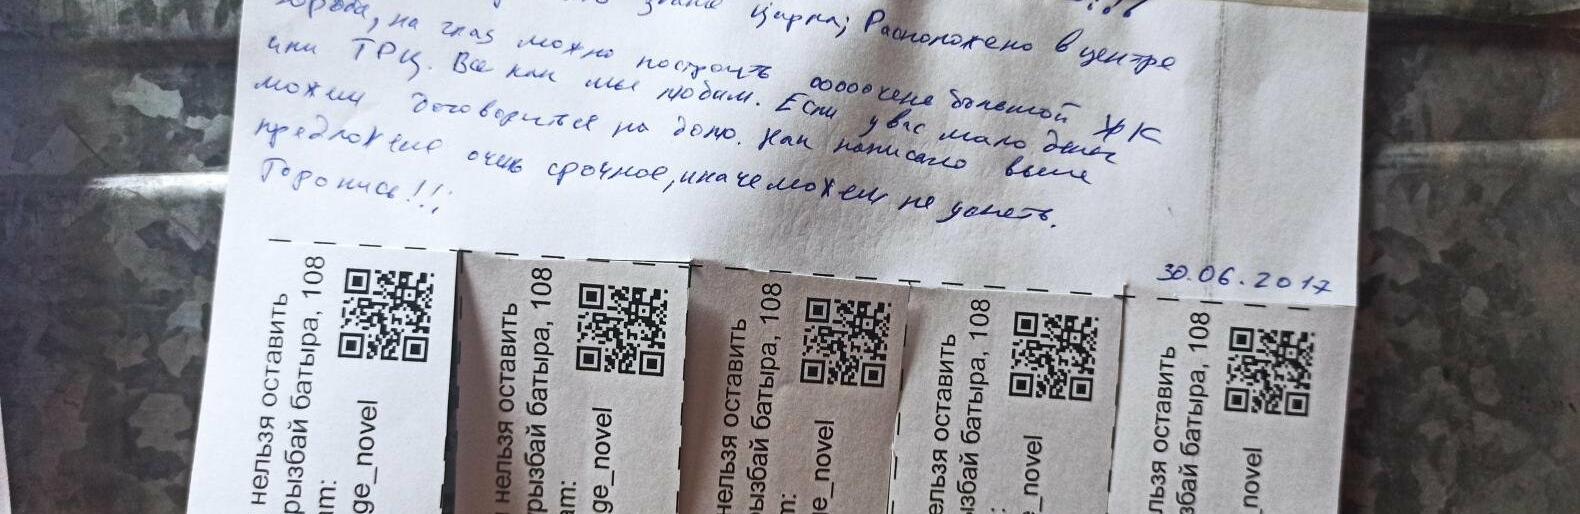 здание цирка; Расположено в центре
города, на глаз можно построить ооооочень большой ЖК
или ТРЦ. Все как мы любим. Если у вас мало денег
можем договориться на долю. Как написано выше
предложение очень срочное, иначе можем не успеть.
Торопись!!!
30.06.2017
нельзя оставить
рызбай батыра, 108
am:
ge_novel
нельзя оставить
рызбай батыра, 108
am:
ge_novel
нельзя оставить
рызбай батыра, 108
m:
ge_novel
ельзя оставить
ызбай батыра, 108
:
e_novel
льзя оставить
збай батыра, 108
_novel